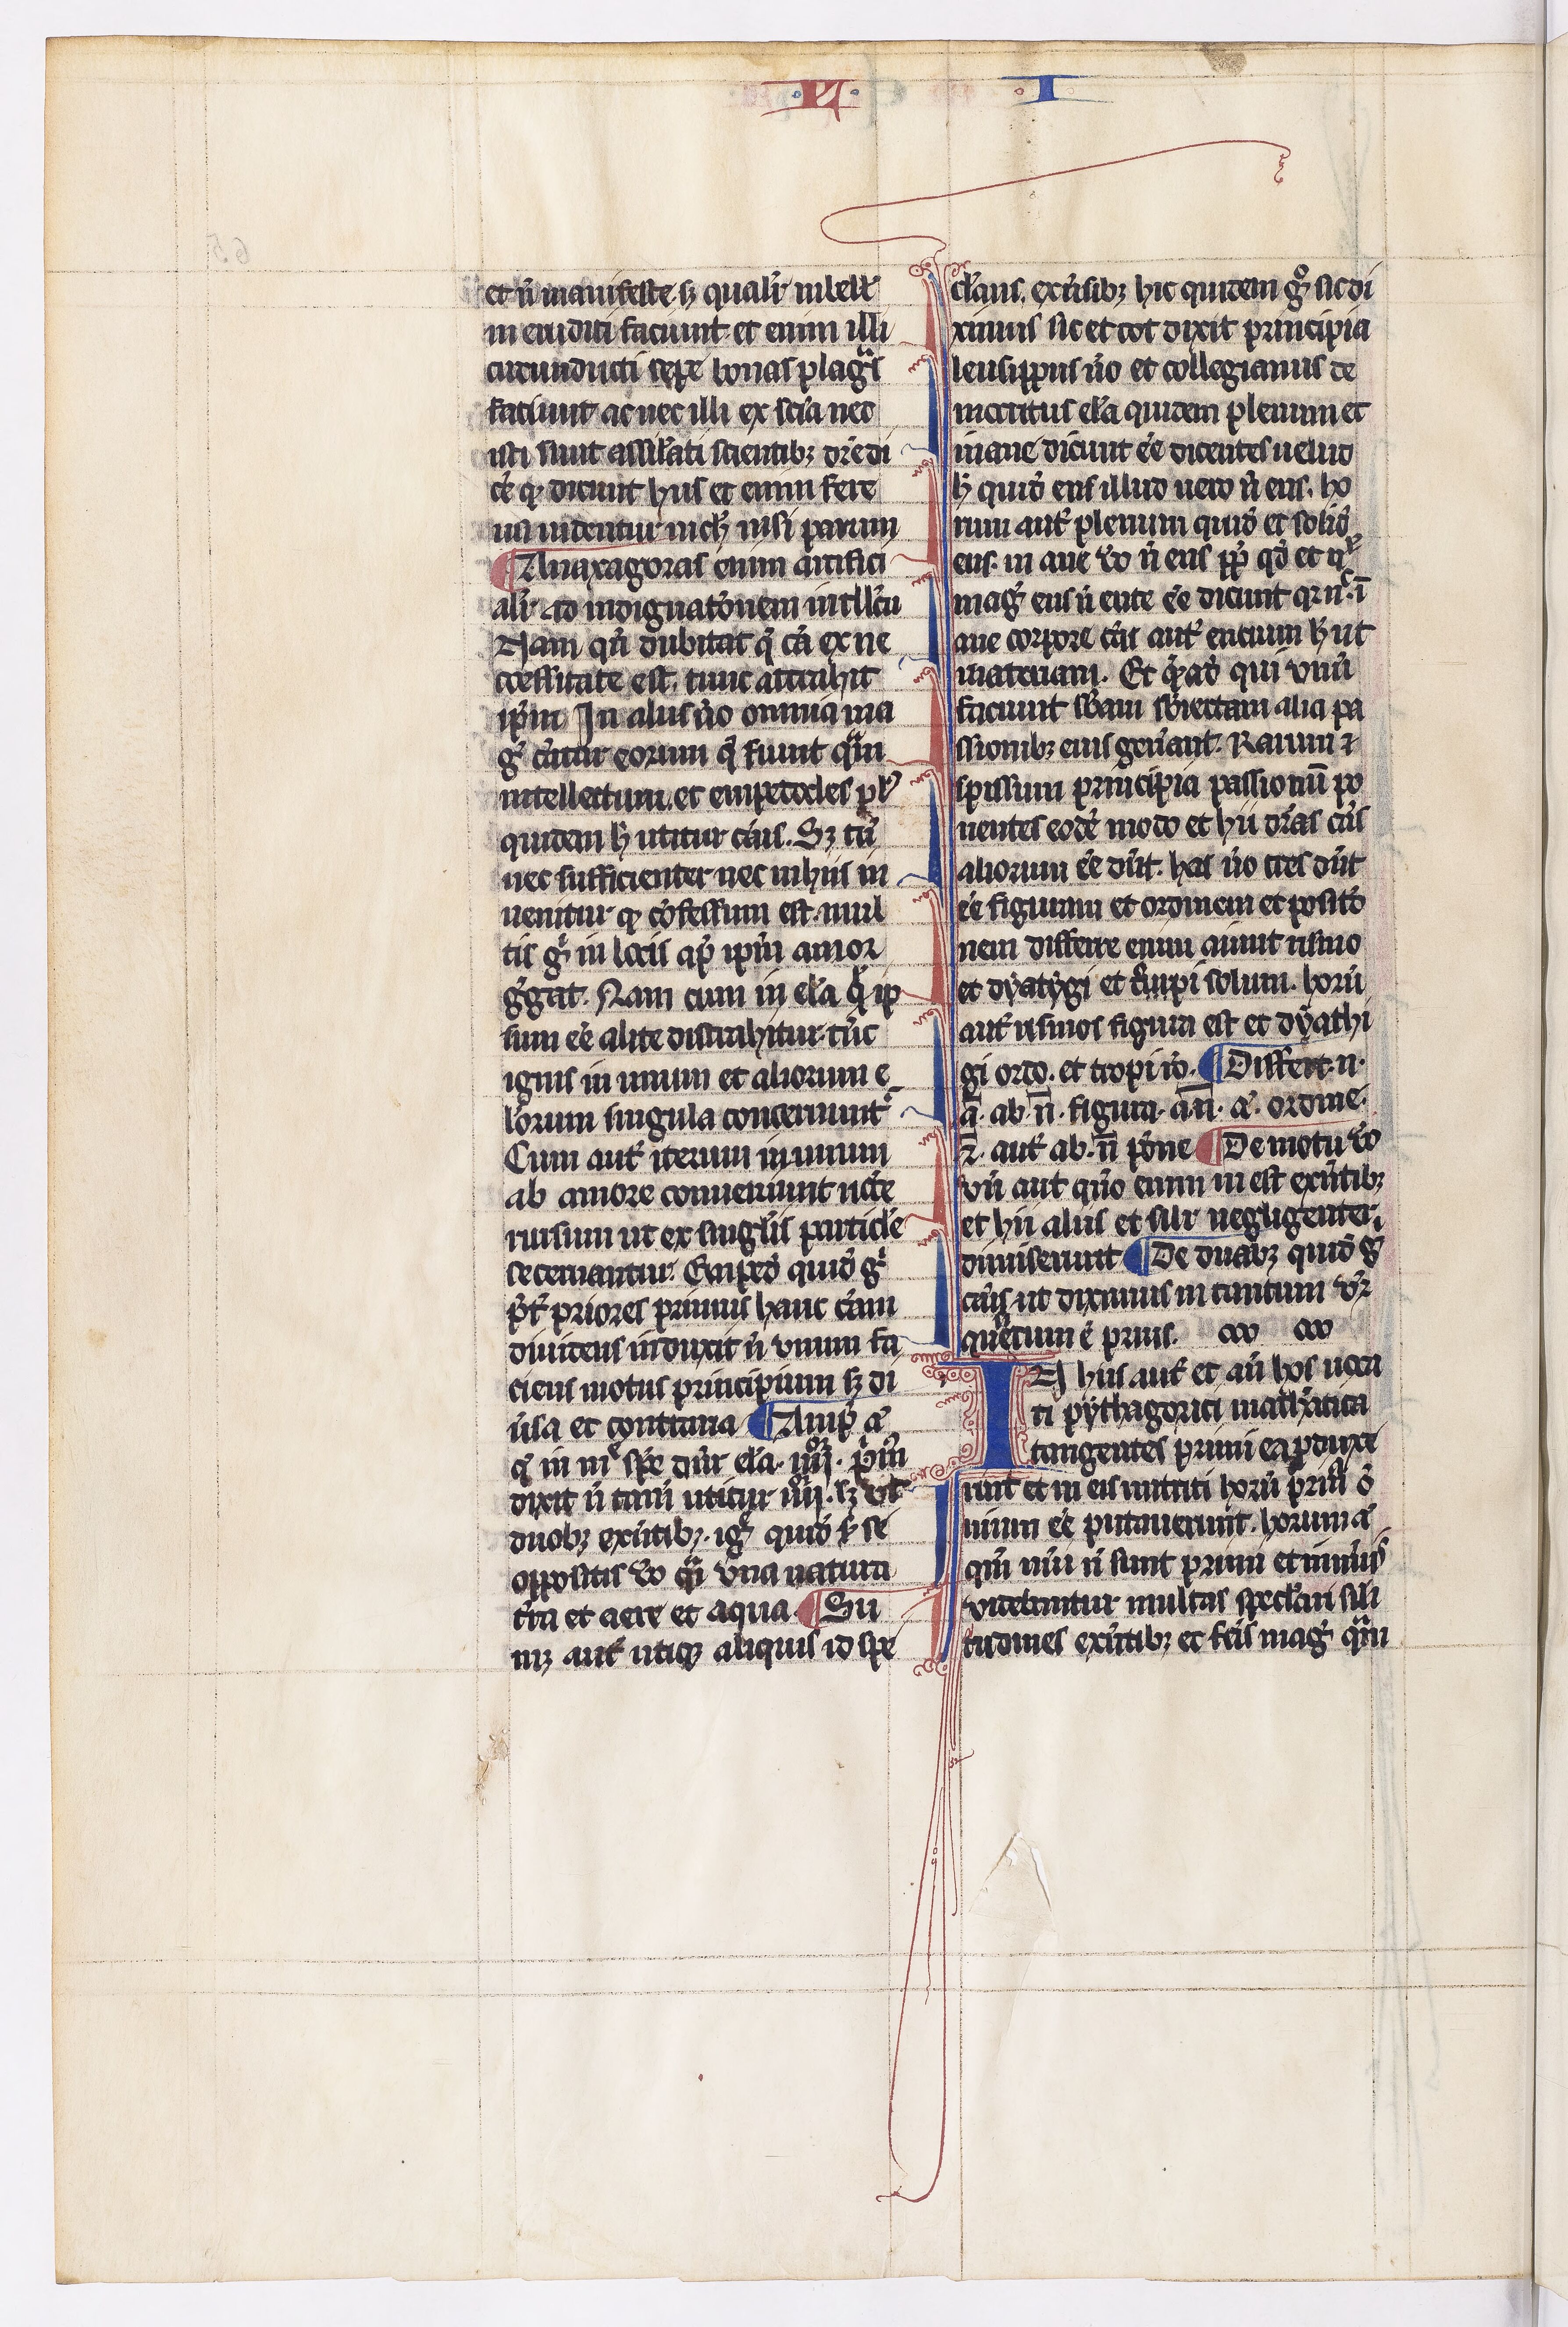 M I
et ñ manifeste. sꝫ qualr̃ in bell̃
ineruditi faciunt. et enim illi
circunducti sepe bonas plagas
faciunt ac nec illi ex scĩa nec
isti sunt assil̃ati scientibꝫ
dicunt hiis et enim fere
uidentur nich̃ nisi parum
¶ Anaxagoras enim artifici
alr̃ ad mõem intell̃cũ
Nam qñ dubitat q̃ cã ex ne
cessitate est. tunc attrahit
ip̃m In aliis ũo omnia ma
g̃ eorum q̃ fiunt qᵃm
intellectum. et empedocles pl̃
quidem h̃ utitur cãis. Sꝫ tñ
nec sufficienter nec in hiis in
uenitur ꝙ cõfessum est. mul
tis gͥ in locis ap̃ ip̃m amor
Nam cum in el̃a q̃ ip
sum ẽe a lite distrahitur. tũc
ignis in unum et aliorum e
l̃orum singula concernunt.
Cum aut̃ iterum in unum
ab amore conueniunt ncẽe
rursum ut ex singl̃is particl̃e
secernantur. Emped̃ quid̃ gͥ
p̃t̃ priores primus hanc cãm
diuidens induxit ñ unum fa
ciens motus principium sꝫ di
ũsa et contraria ¶ Amp̃ æ
q̃ in mͣ sp̃e dñr el̃a. iiiiᵒʳ. pͥm̃
dixit ñ tam̃ utitur iiiiᵒʳ. sꝫ ut
duobꝫ exñtibꝫ. ig̃ quid̃ s̃ se
oppositis ũo qͣi una natura
t̃ra et aere et aqua ¶ Su
mꝫ aut̃ utiqꝫ aliquis id spe
cl̃ans. ex ũsibꝫ hic quidem gͦ sic di
ximus sic et tot dixit principia
leusippus ũo et collegianus de
mocritus el̃a quidem plenum et
inane dicunt ẽe dicentes uelud
h̃ quid̃ ens illud uero ñ ens. ho
rum aut̃ plenum quid̃ et solid̃
ens. inane ũo ñ ens pp̃ qd̃ et
mag̃ ens ñ ente ẽe dicunt
ane corpore cãs aut̃ entium h̃ ut
materiam. Et qͣad̃ qui unũ
faciunt sb̃am sb̃iectam alia pa
ssionibꝫ eius gen̄ant. Rarum ⁊
spissum principia passionũ po
nentes eodẽ modo et hii dr̃as cãs
aliorum ẽe dñt. has ũo tres dñt
ẽe figuram et ordinem et positõ
nem differre enim aiunt rismo
et dyatygi et tropi solum. horũ
aut̃ rismos figura est et dyathi
gi ordo. et tropi ꝓ. ¶ Differt. n.
a. ab. n. figura. a n. æ. ordine.
z. aut̃ ab. n põne ¶ De motu ũo
un̄ aut quo enim inest exñtibꝫ
et hii aliis et silr̃ negligenter.
dimiserunt ¶ De duabꝫ quid̃ gͥ
cãis ut diximus in tantum ur̃
quesitum ẽ prius.
IN hiis aut̃ et an̄ hos uoca
ti pythagorici math̃atica
tangentes primi ea ꝓduxe
runt et in eis nutriti horũ prinᵃ õ
nium ẽe putauerunt. horum æ
qm̃ nũi ñ sunt primi et in nũis
uidebantur multas specl̃ari sili
tudines exñtibꝫ et feĩs mag̃ qᵃm